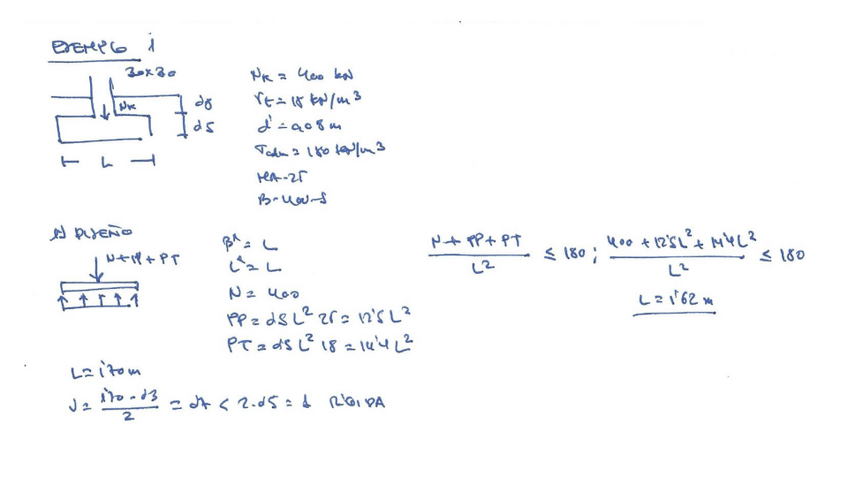 EJEMPLO 1
30x30
NK
0'8
0'5
L
NK = 400 kN
γt = 18 kN/m3
d' = 0.08 m
σadm = 180 kN/m3
HA-25
B-400-S
A) DISEÑO
N + PP + PT
B* = L
L* = L
N = 400
PP = 0'5 L² 25 = 12'5 L²
PT = 0'8 L² 18 = 14'4 L²
N + PP + PT / L² ≤ 180 ; 400 + 12'5L² + 14'4L² / L² ≤ 180
L = 1'62 m
L = 1'70 m
V = 1'70 - 0'3 / 2 = 0'7 < 2·0'5 = 1 RÍGIDA